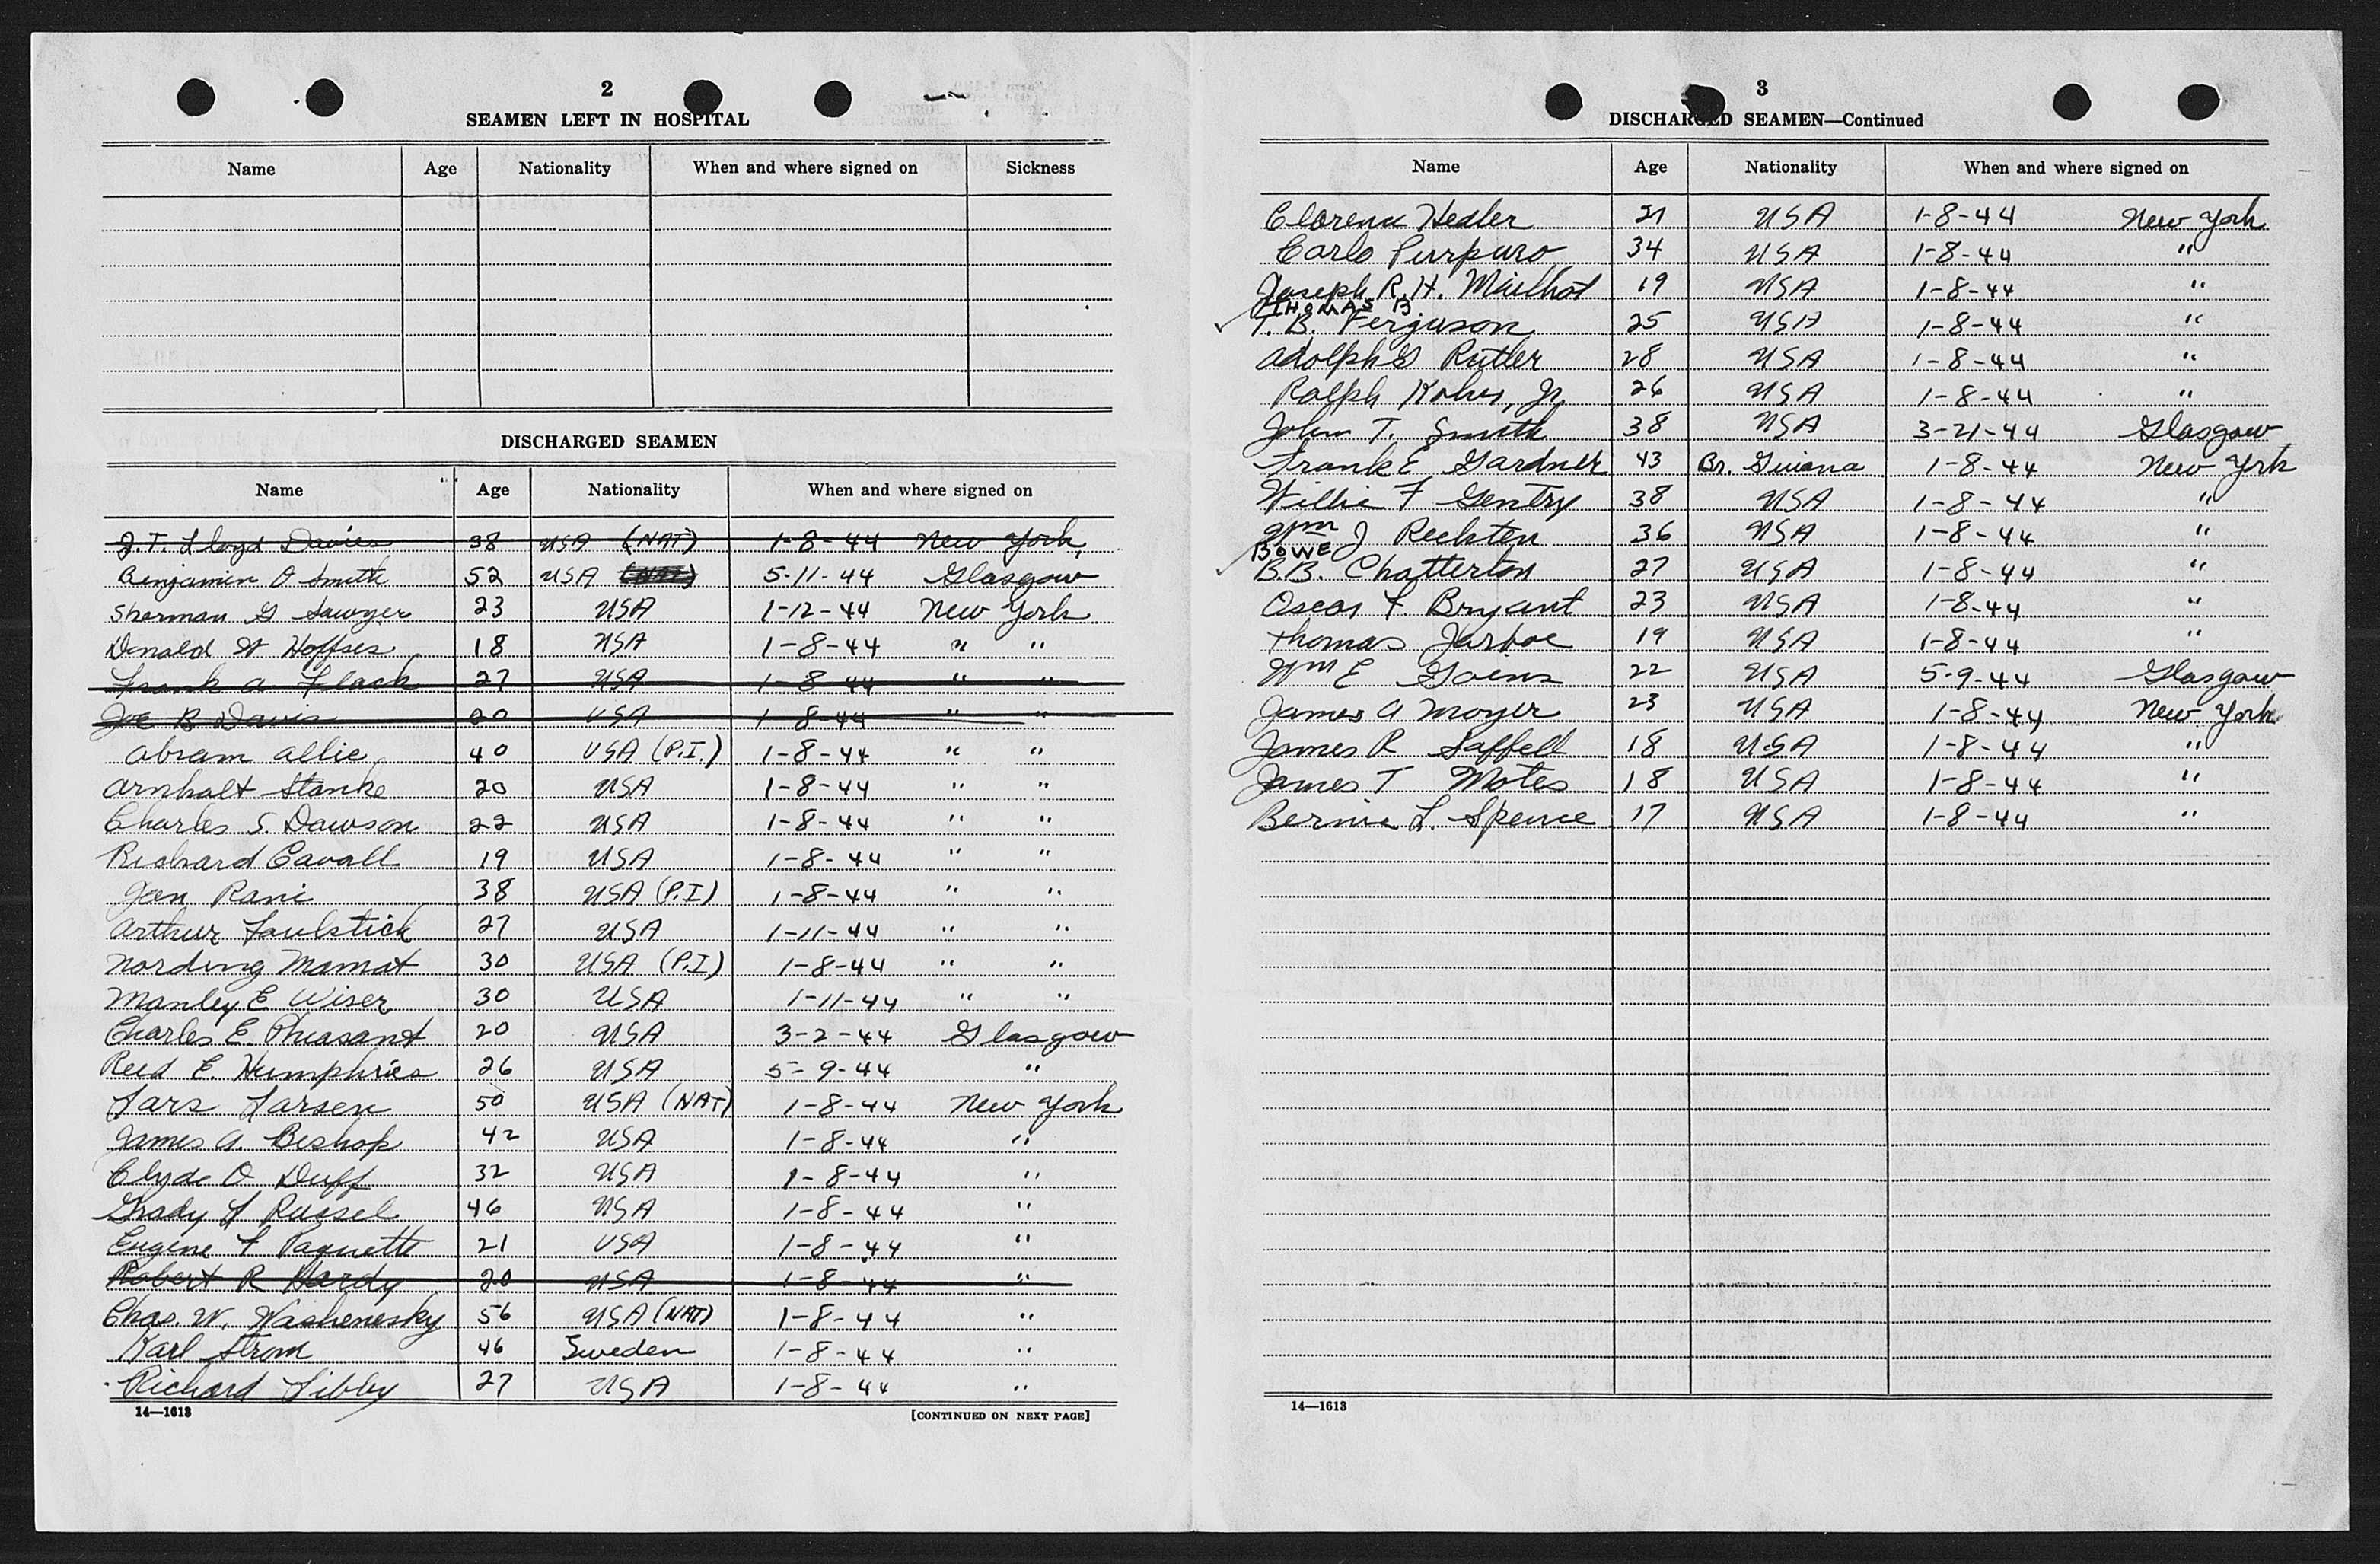 2
SEAMEN LEFT IN HOSPITAL
Name Age Nationality When and where signed on Sickness
DISCHARGED SEAMEN
Name Age Nationality When and where signed on
J. T. Lloyd Davies 38 USA (NAT) 1-8-44 New York
Benjamin O Smith 52 USA (NAT) 5-11-44 Glasgow
Sherman G Sawyer 23 USA 1-12-44 New York
Donald W Hoffses 18 USA 1-8-44 " "
Frank A Flach 27 USA 1-8-44 " "
Joe B Davis 20 USA 1-8-44 " "
Abram Allie 40 USA (P.I.) 1-8-44 " "
Arnhalt Stanke 20 USA 1-8-44 " "
Charles S. Dawson 22 USA 1-8-44 " "
Richard Cavall 19 USA 1-8-44 " "
Jan Rani 38 USA (P.I) 1-8-44 " "
Arthur Faulstick 27 USA 1-11-44 " "
Nording Mamat 30 USA (P.I) 1-8-44 " "
Manley E Wiser 30 USA 1-11-44 " "
Charles E. Pheasant 20 USA 3-2-44 Glasgow
Reed E. Humphries 26 USA 5-9-44 "
Lars Larsen 50 USA (NAT) 1-8-44 New York
James A. Bishop 42 USA 1-8-44 "
Clyde O Duff 32 USA 1-8-44 "
Grady F Russel 46 USA 1-8-44 "
Eugene F Paquette 21 USA 1-8-44 "
Robert R Hardy 20 USA 1-8-44 "
Chas. W. Washenesky 56 USA (NAT) 1-8-44 "
Karl Strom 46 Sweden 1-8-44 "
Richard Libby 27 USA 1-8-44 "
14—1613 [CONTINUED ON NEXT PAGE]
3
DISCHARGED SEAMEN—Continued
Name Age Nationality When and where signed on
Clarence Hedler 21 USA 1-8-44 New York
Carlo Purpuro 34 USA 1-8-44 "
Joseph R. H. Mailhot 19 USA 1-8-44 "
THOMAS B
T. B. Ferguson 25 USA 1-8-44 "
Adolph G Rutler 28 USA 1-8-44 "
Ralph Kohns, Jr. 26 USA 1-8-44 "
John T. Smith 38 USA 3-21-44 Glasgow
Frank E Gardner 43 Br. Guiana 1-8-44 New York
Willie F Gentry 38 USA 1-8-44 "
Wm J Reckten 36 USA 1-8-44 "
BOWE
B.B. Chatterton 27 USA 1-8-44 "
Oscar F Bryant 23 USA 1-8-44 "
Thomas Jarboe 19 USA 1-8-44 "
Wm E Goins 22 USA 5-9-44 Glasgow
James A Moyer 23 USA 1-8-44 New York
James R Saffell 18 USA 1-8-44 "
James T Motes 18 USA 1-8-44 "
Bernie L. Spence 17 USA 1-8-44 "
14—1613